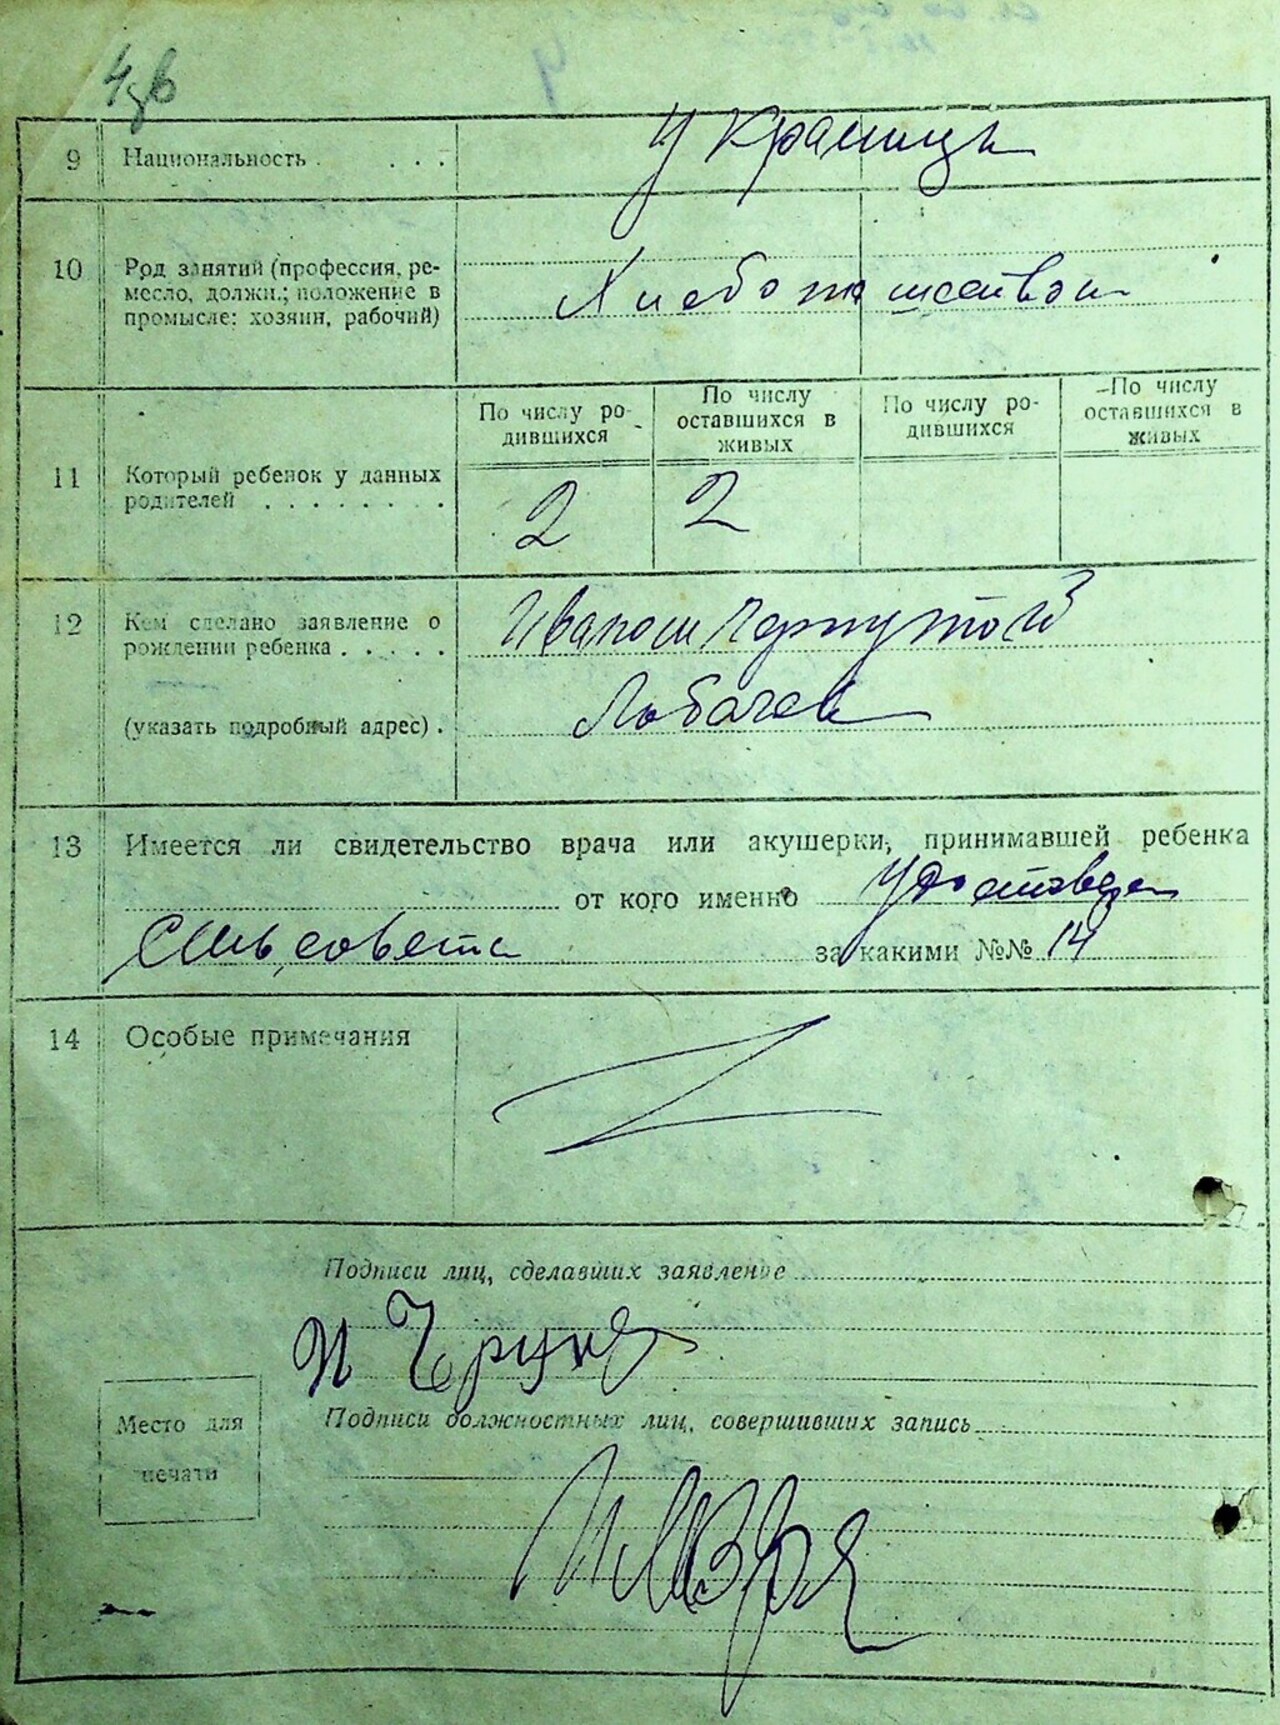 9 Национальность . . . . Украинцы
10 Род занятий (профессия, ре-
месло, должн.; положение в
промысле: хозяин, рабочий)
Хлебопашеством
11 Который ребенок у данных
родителей . . . . . . . .
По числу ро-
дившихся
По числу
оставшихся в
живых
По числу ро-
дившихся
По числу
оставшихся в
живых
2 2
12 Кем сделано заявление о
рождении ребенка . . . . .
Иваном
(указать подробный адрес) .
Лобачев
13 Имеется ли свидетельство врача или акушерки, принимавшей ребенка
от кого именно Удостовер
Сельсовета за какими №№ 14
14 Особые примечания
Подписи лиц, сделавших заявление
Подписи должностных лиц, совершивших запись
Место для
печати